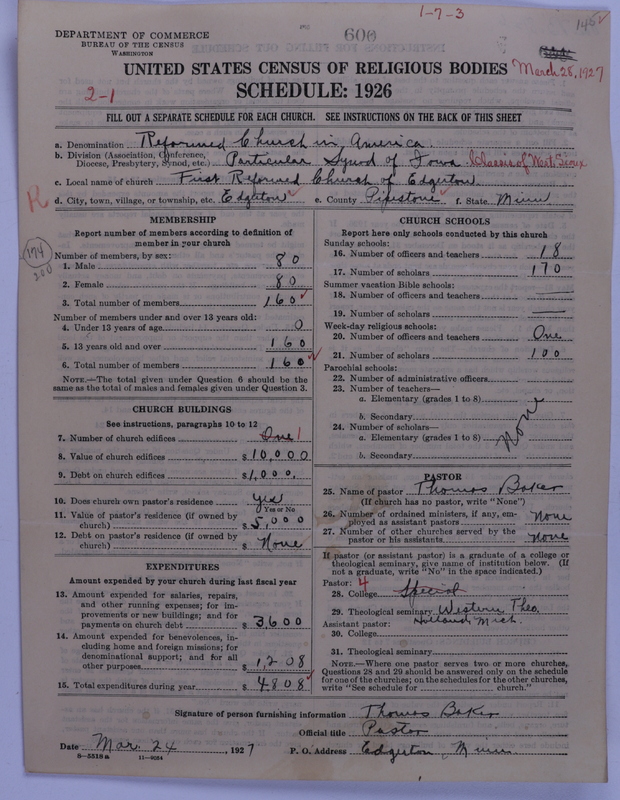 1-7-3
600
145
DEPARTMENT OF COMMERCE
BUREAU OF THE CENSUS
WASHINGTON
UNITED STATES CENSUS OF RELIGIOUS BODIES
March 28, 1927
2-1
SCHEDULE: 1926
FILL OUT A SEPARATE SCHEDULE FOR EACH CHURCH. SEE INSTRUCTIONS ON THE BACK OF THIS SHEET
a. Denomination Reformed Church in America
b. Division (Association, Conference, Diocese, Presbytery, Synod, etc.) Particular Synod of Iowa Classis of West Sioux
c. Local name of church First Reformed Church of Edgerton
R
d. City, town, village, or township, etc. Edgerton e. County Pipestone f. State Minn
174
200
MEMBERSHIP
Report number of members according to definition of
member in your church
Number of members, by sex:
1. Male 80
2. Female 80
3. Total number of members 160
Number of members under and over 13 years old:
4. Under 13 years of age 0
5. 13 years old and over 160
6. Total number of members 160
NOTE.—The total given under Question 6 should be the
same as the total of males and females given under Question 3.
CHURCH BUILDINGS
See instructions, paragraphs 10 to 12
7. Number of church edifices One 1
8. Value of church edifices $10,000
9. Debt on church edifices $1,000.
10. Does church own pastor's residence yes
Yes or No
11. Value of pastor's residence (if owned by
church) $5,000
12. Debt on pastor's residence (if owned by
church) $ None
EXPENDITURES
Amount expended by your church during last fiscal year
13. Amount expended for salaries, repairs,
and other running expenses; for im-
provements or new buildings; and for
payments on church debt $3,600
14. Amount expended for benevolences, in-
cluding home and foreign missions; for
denominational support; and for all
other purposes $1,208
15. Total expenditures during year $4808
CHURCH SCHOOLS
Report here only schools conducted by this church
Sunday schools:
16. Number of officers and teachers 18
17. Number of scholars 170
Summer vacation Bible schools:
18. Number of officers and teachers
19. Number of scholars
Week-day religious schools:
20. Number of officers and teachers One
21. Number of scholars 100
Parochial schools:
22. Number of administrative officers
23. Number of teachers—
a. Elementary (grades 1 to 8)
b. Secondary
None
24. Number of scholars—
a. Elementary (grades 1 to 8)
b. Secondary
PASTOR
25. Name of pastor Thomas Baker
(If church has no pastor, write "None")
26. Number of ordained ministers, if any, em-
ployed as assistant pastors None
27. Number of other churches served by the
pastor or his assistants None
If pastor (or assistant pastor) is a graduate of a college or
theological seminary, give name of institution below. (If
not a graduate, write "No" in the space indicated.)
Pastor: 4
28. College Special
29. Theological seminary Western Theo.
Assistant pastor: Holland Mich.
30. College
31. Theological seminary
NOTE.—Where one pastor serves two or more churches,
Questions 28 and 29 should be answered only on the schedule
for one of the churches; on the schedules for the other churches,
write "See schedule for church."
Signature of person furnishing information Thomas Baker
Official title Pastor
Date Mar. 24, 1927 P. O. Address Edgerton, Minn.
8—5518a 11—9054